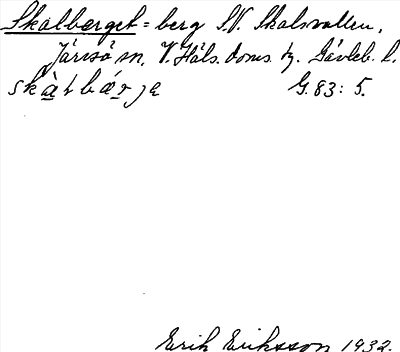 Skalberget = berg S.V. Skalsvallen,
Järvsö sn. V. Häls. doms. tg. Gävleb. l.
skàlbǽrja G. 83: 5.
Erik Eriksson 1932.